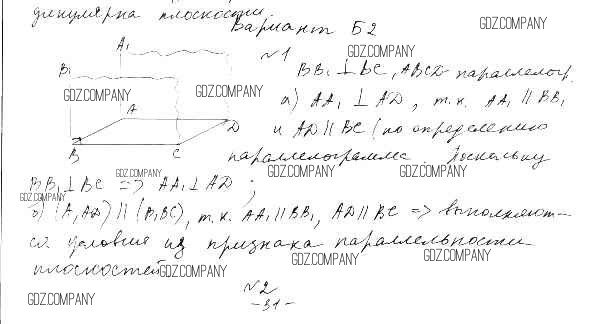 дикулярна плоскости.
Вариант Б2
GDZ.COMPANY
№1
GDZ.COMPANY
BB₁ ⊥ BC, ABCD параллелогр.
A₁
B₁
GDZ.COMPANY
GDZ.COMPANY
A
B
C
D
а) AA₁ ⊥ AD, т.к. AA₁ ∥ BB₁
GDZ.COMPANY
и AD ∥ BC (по определению
параллелограмма. Поскольку
GDZ.COMPANY
GDZ.COMPANY
GDZ.COMPANY
BB₁ ⊥ BC => AA₁ ⊥ AD;
GDZ.COMPANY
б) (A₁AD) ∥ (B₁BC), т.к. AA₁ ∥ BB₁, AD ∥ BC => выполняют-
ся условия из признака параллельности
плоскостей
GDZ.COMPANY
GDZ.COMPANY
GDZ.COMPANY
GDZ.COMPANY
GDZ.COMPANY
№2
-31-